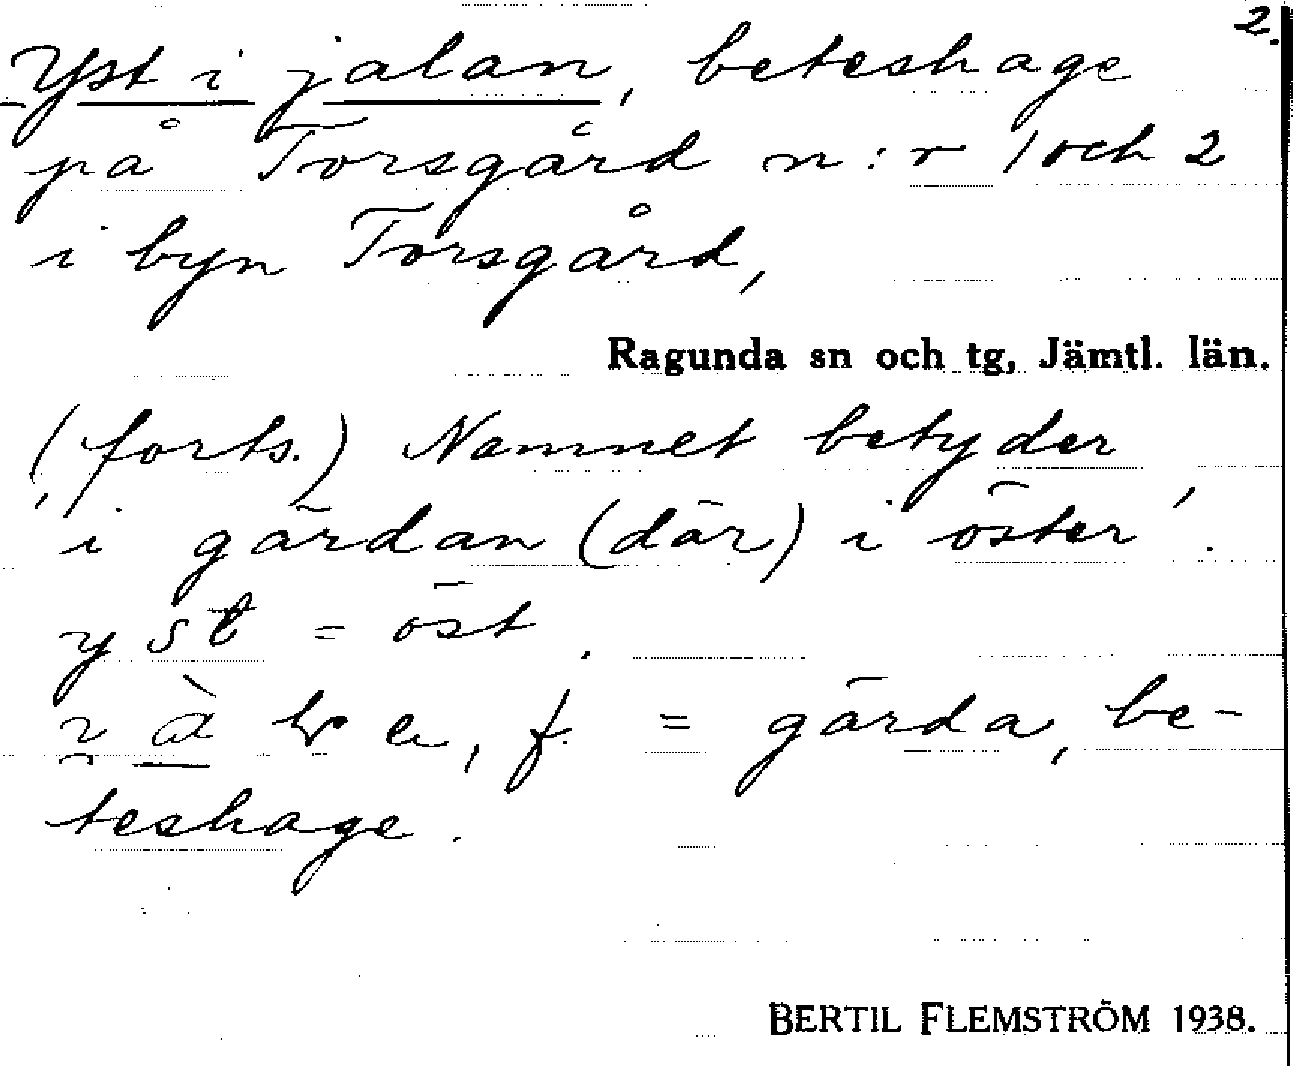 2.
Yst i jalan, beteshage
på Torsgård n:r 1 och 2
i byn Torsgård,
Ragunda sn och tg, Jämtl. län.
(forts.) Namnet betyder
'i gärdan (där) i öster'.
yst = öst.
f. = gärda, be-
teshage.
BERTIL FLEMSTRÖM 1938.